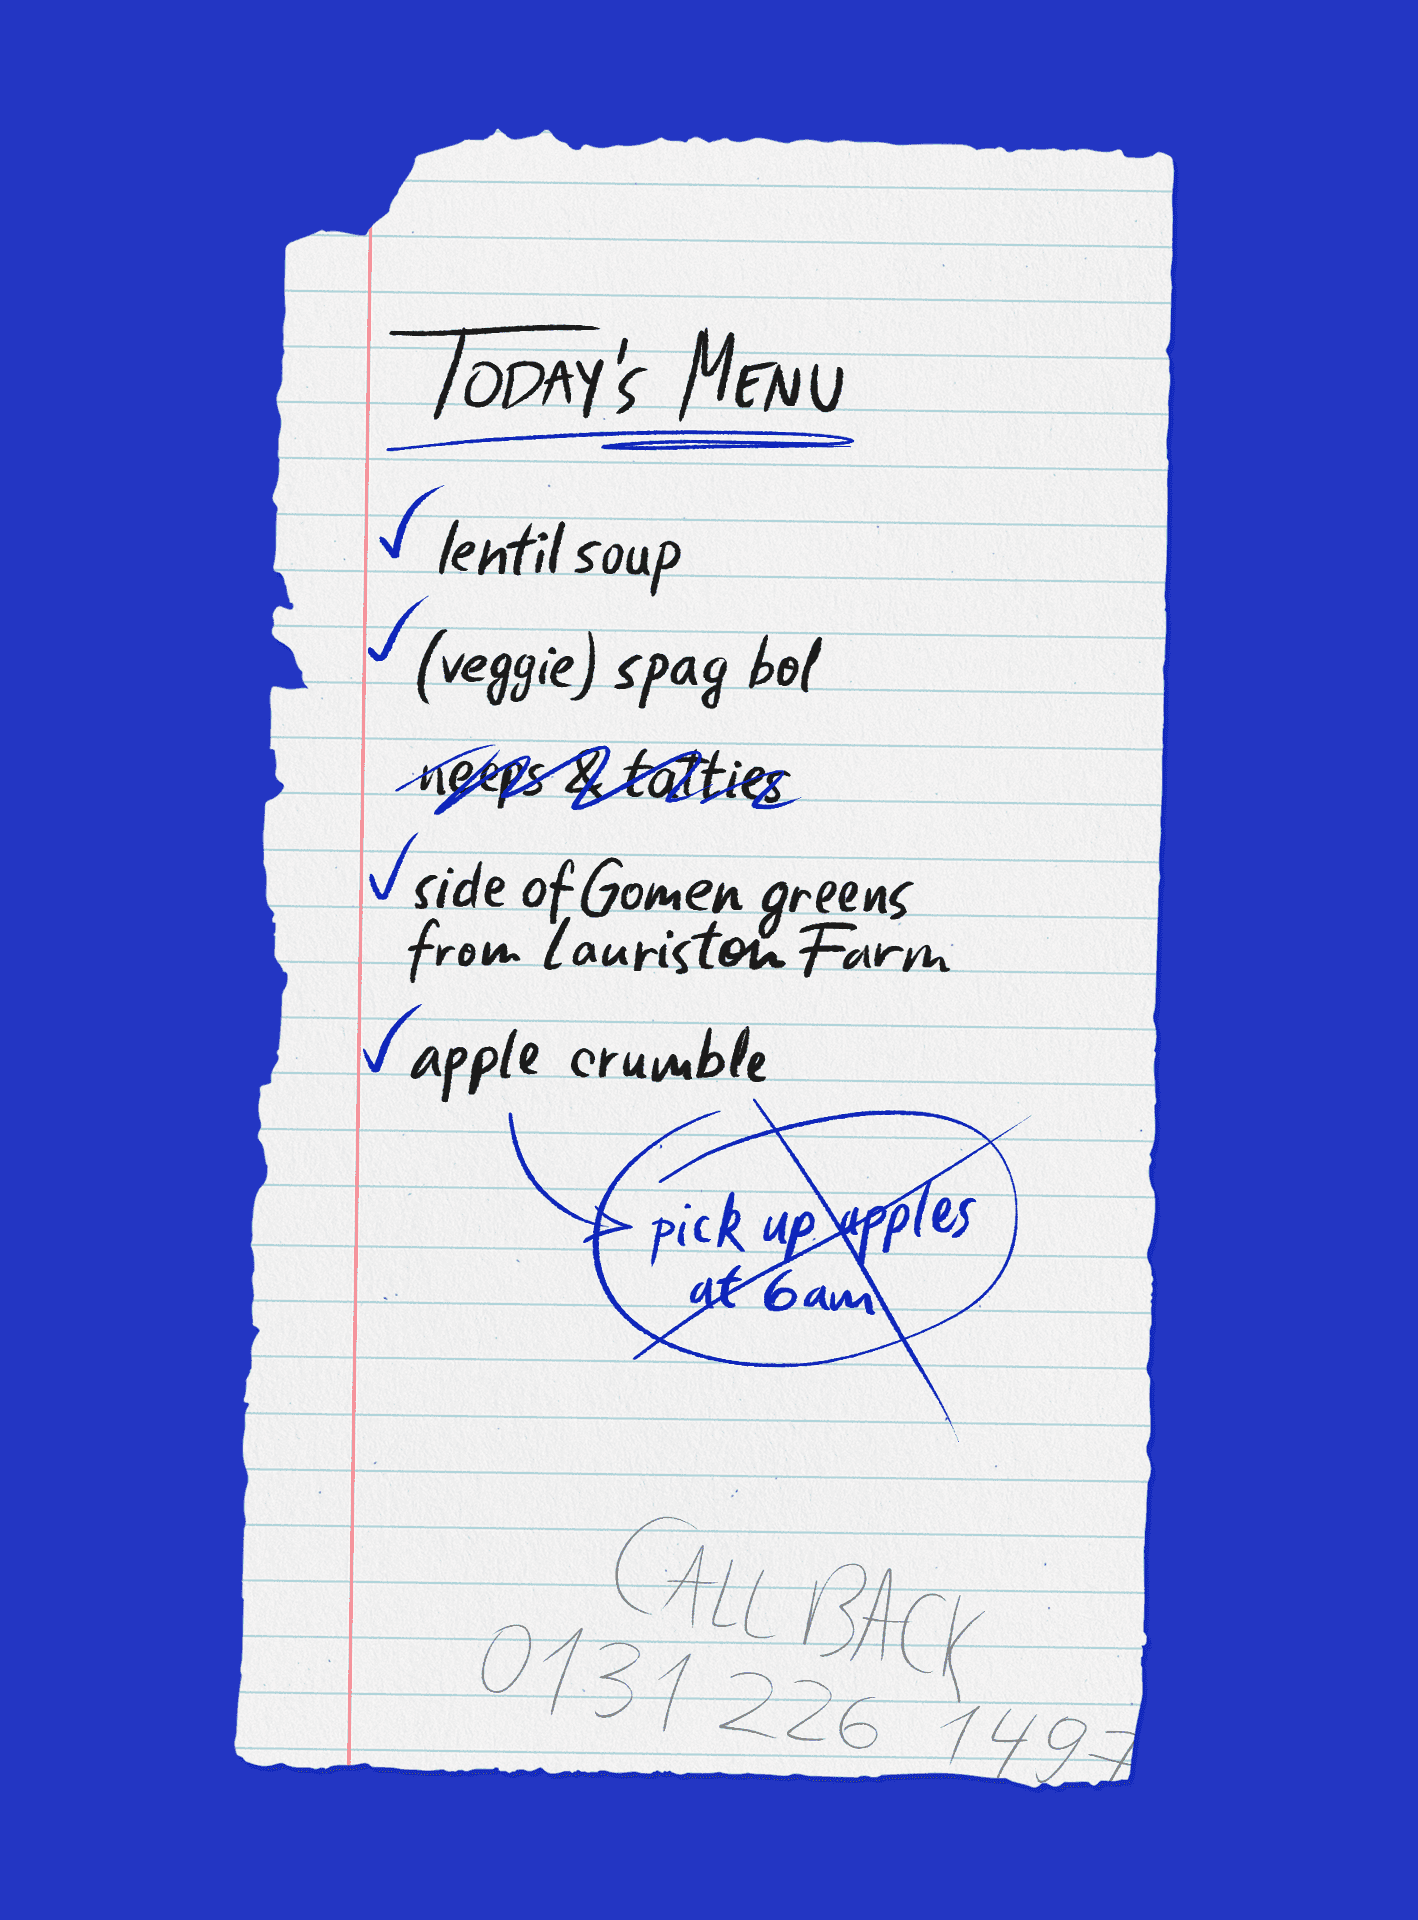 TODAY'S MENU
lentil soup
(veggie) spag bol
neeps & tatties
side of Gomen greens
from Lauriston Farm
apple crumble
pick up apples
at 6am
CALL BACK
0131 226 1497